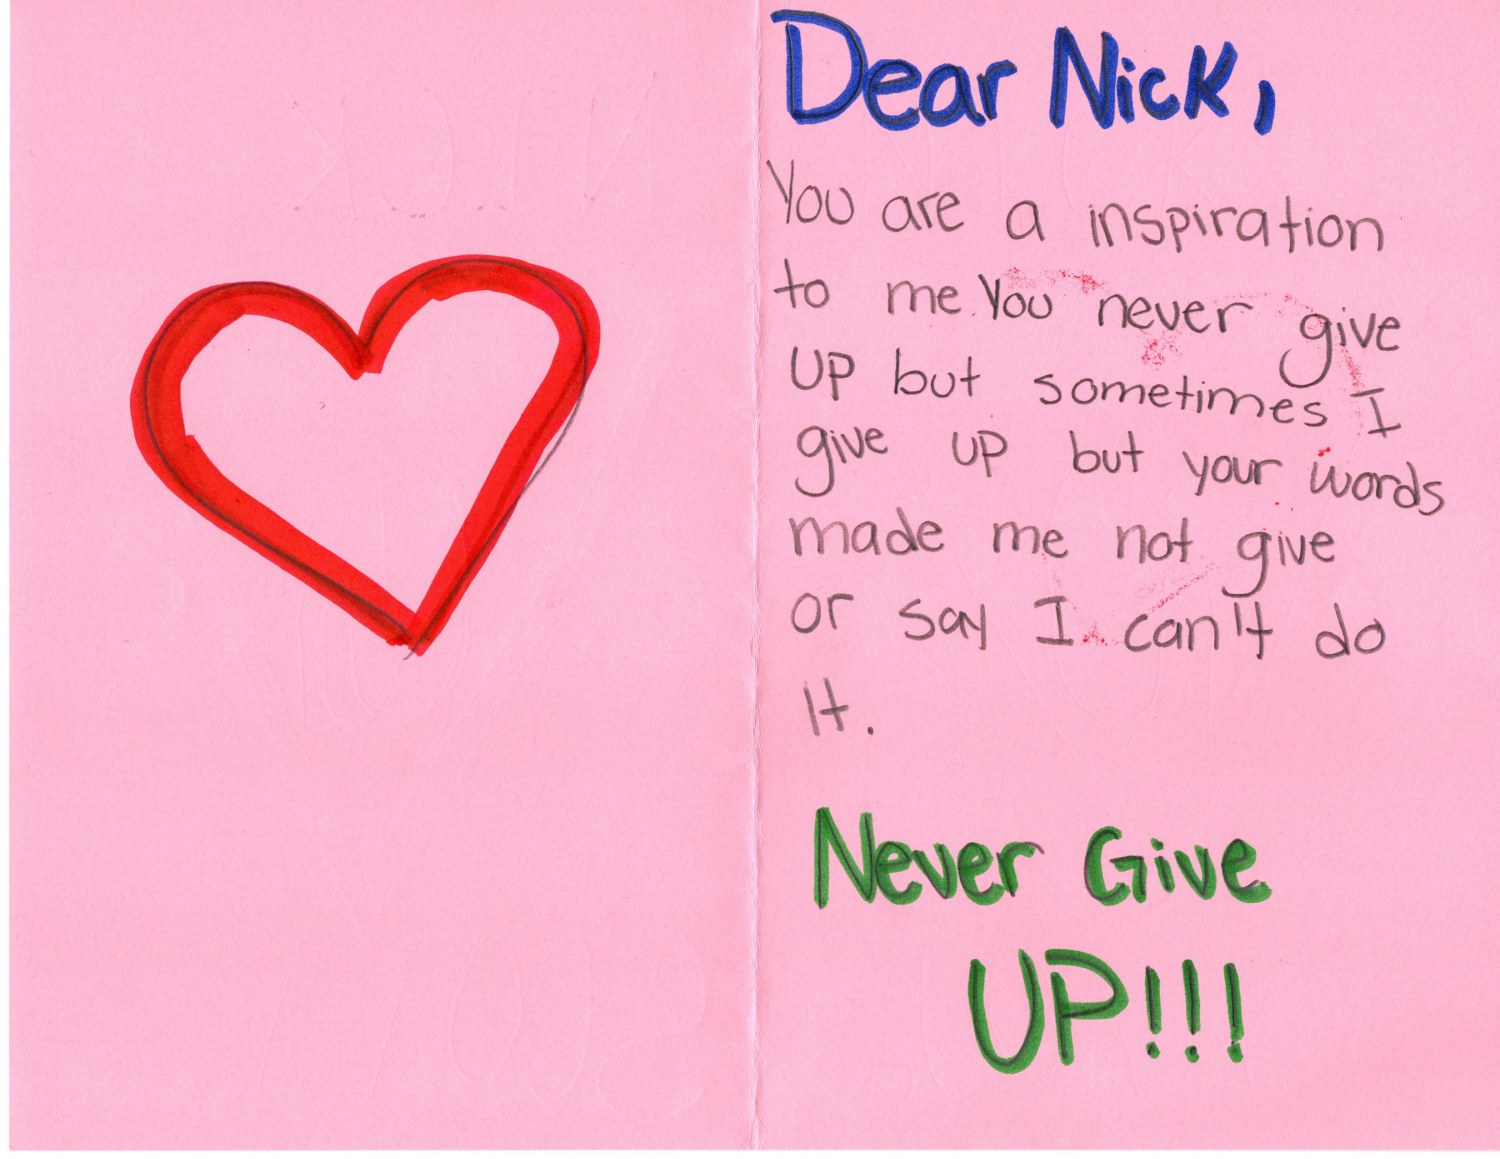 Dear Nick,
You are a inspiration
to me. You never give
up but sometimes I
give up but your words
made me not give
or say I can't do
it.
Never Give
UP!!!